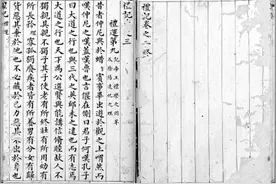 禮記卷之二終
禮記
三
禮運第九
昔者仲尼與於蜡賓事畢出遊於觀之上喟然而
嘆仲尼之嘆蓋嘆魯也言偃在側曰君子何嘆孔子
曰大道之行也與三代之英丘未之逮也而有志焉
大道之行也天下為公選賢與能講信脩睦故人不
獨親其親不獨子其子使老有所終壯有所用幼有
所長矜寡孤獨廢疾者皆有所養男有分女有歸
貨惡其棄於地也不必藏於己力惡其不出於身也